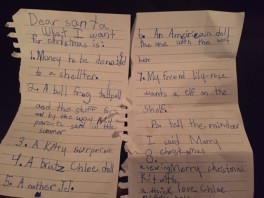 Dear santa
What I want
for christmas is:
1. Money to be donated
to a shellter.
2. A bull frog tadpoll
and this stuff is
not by the way My
parents said in the
summer
3. A Kitty surprise
4. A bratz Chloe doll
5. A
6. An American doll
the one with the
7. My freind lily-rose
wants a elf on the
shelf.
tell the raindeer
I said Marry
christmas
christmas
love, Chloe